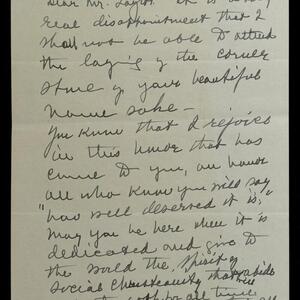 Dear Mr. It is a very
real disappointment that I
shall not be able to attend
the laying of the corner
stone of your beautiful
name sake —
You know that I rejoice
in this honor that has
come to you, an honor
all who know you will say
"how well deserved it is,"
may you be here when it is
dedicated and give to
the world the spirit of
Social Christianity that